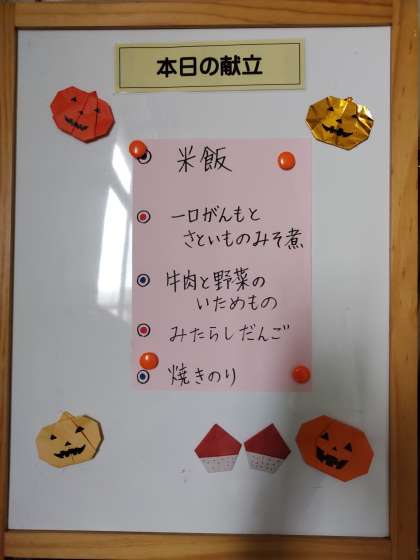 本日の献立
米飯
一口がんもと
さといものみそ煮
牛肉と野菜の
いためもの
みたらしだんご
焼きのり